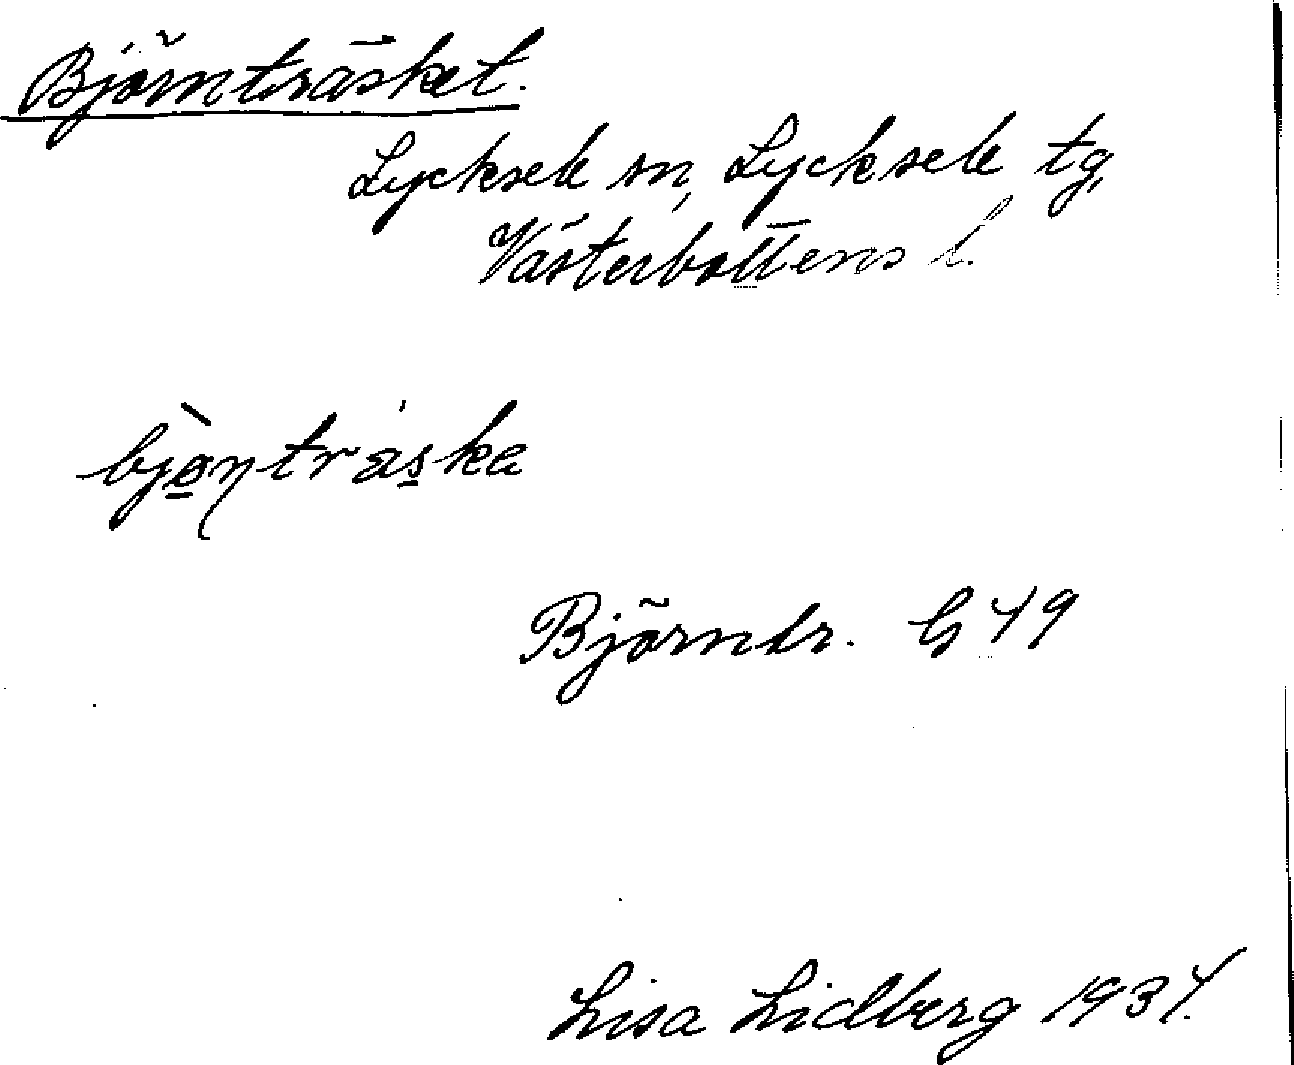 Björnträsket.
Lycksele sn, Lycksele tg,
Västerbottens l.
bjø̠̀ŋträs̠ka
Björntr. G 49
Lisa Lidberg 1934.